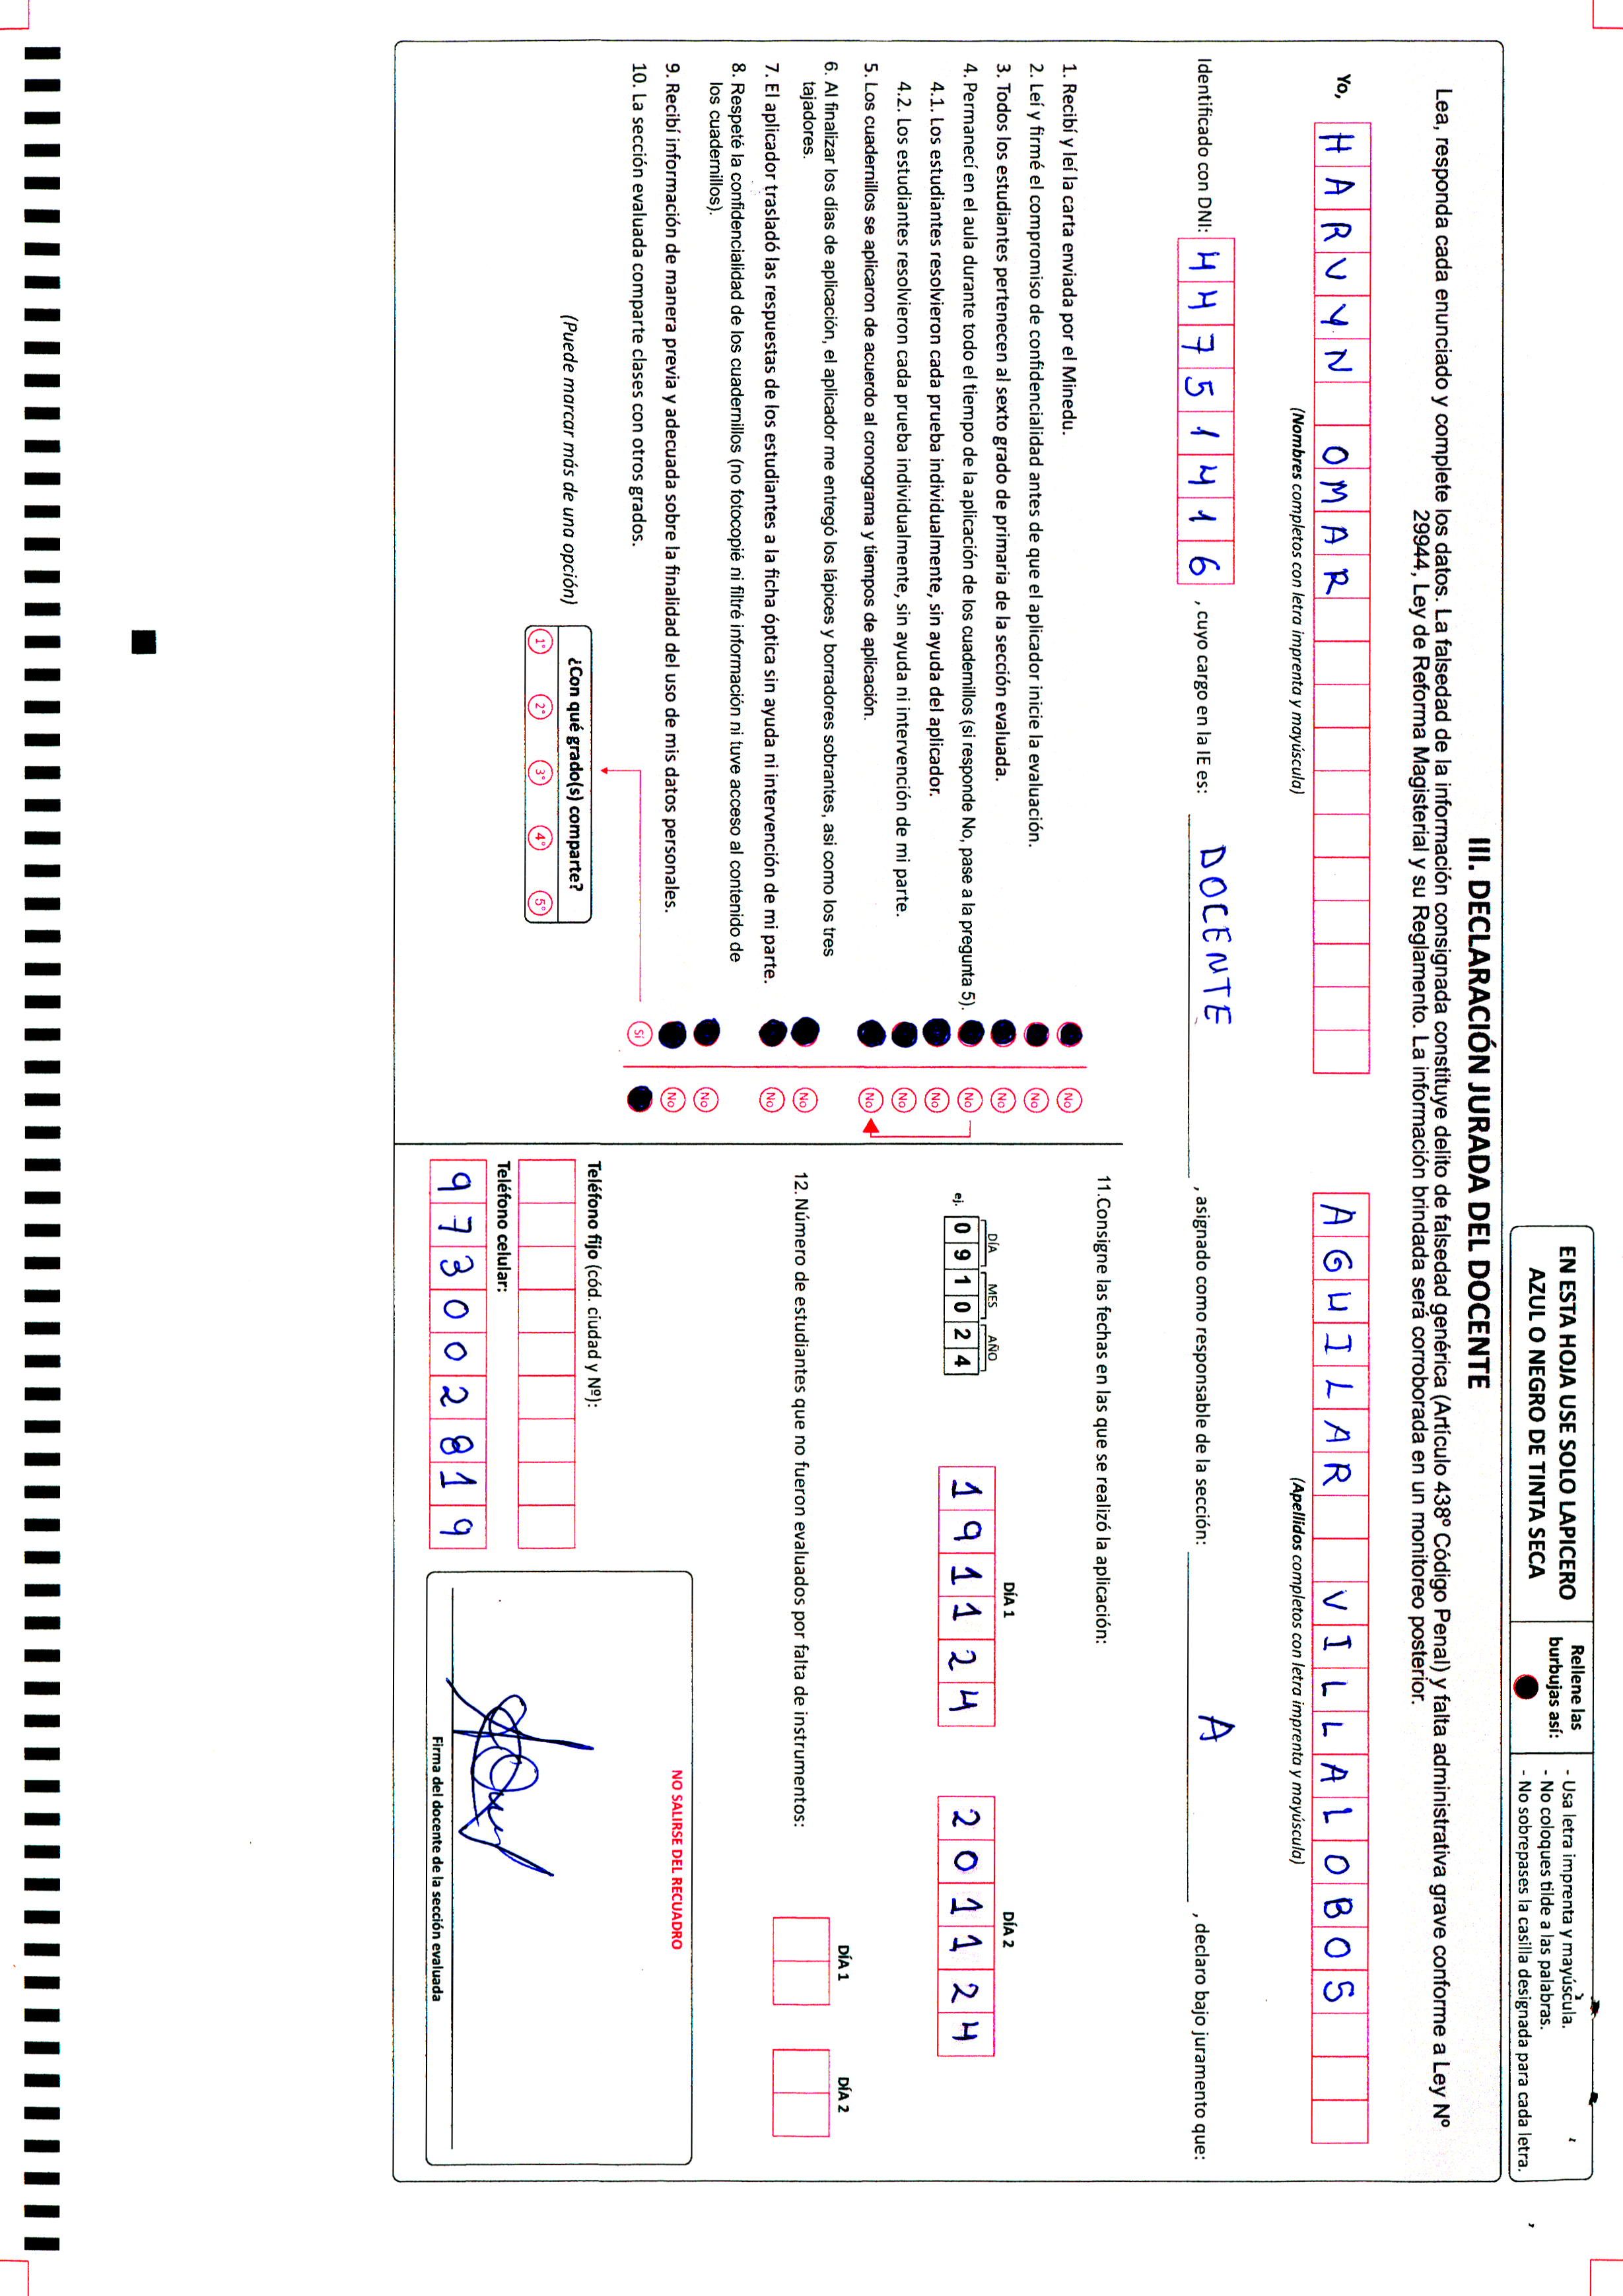 EN ESTA HOJA USE SOLO LAPICERO
AZUL O NEGRO DE TINTA SECA
Rellene las
burbujas así:
- Usa letra imprenta y mayúscula.
- No coloques tilde a las palabras.
- No sobrepases la casilla designada para cada letra.
III. DECLARACIÓN JURADA DEL DOCENTE
Lea, responda cada enunciado y complete los datos. La falsedad de la información consignada constituye delito de falsedad genérica (Artículo 438º Código Penal) y falta administrativa grave conforme a Ley Nº
29944, Ley de Reforma Magisterial y su Reglamento. La información brindada será corroborada en un monitoreo posterior.
Yo, HARVYN OMAR AGUILAR VILLALOBOS
(Nombres completos con letra imprenta y mayúscula) (Apellidos completos con letra imprenta y mayúscula)
Identificado con DNI: 44751416 , cuyo cargo en la IE es: DOCENTE , asignado como responsable de la sección: A , declaro bajo juramento que:
1. Recibí y leí la carta enviada por el Minedu. No
2. Leí y firmé el compromiso de confidencialidad antes de que el aplicador inicie la evaluación. No
3. Todos los estudiantes pertenecen al sexto grado de primaria de la sección evaluada. No
4. Permanecí en el aula durante todo el tiempo de la aplicación de los cuadernillos (si responde No, pase a la pregunta 5). No
4.1. Los estudiantes resolvieron cada prueba individualmente, sin ayuda del aplicador. No
4.2. Los estudiantes resolvieron cada prueba individualmente, sin ayuda ni intervención de mi parte. No
5. Los cuadernillos se aplicaron de acuerdo al cronograma y tiempos de aplicación. No
6. Al finalizar los días de aplicación, el aplicador me entregó los lápices y borradores sobrantes, asi como los tres
tajadores. No
7. El aplicador trasladó las respuestas de los estudiantes a la ficha óptica sin ayuda ni intervención de mi parte. No
8. Respeté la confidencialidad de los cuadernillos (no fotocopié ni filtré información ni tuve acceso al contenido de
los cuadernillos). No
9. Recibí información de manera previa y adecuada sobre la finalidad del uso de mis datos personales. No
10. La sección evaluada comparte clases con otros grados. Sí
(Puede marcar más de una opción)
¿Con qué grado(s) comparte?
1° 2° 3° 4° 5°
11.Consigne las fechas en las que se realizó la aplicación:
DÍA 1 DÍA 2
DÍA MES AÑO
ej. 091024 191124 201124
DÍA 1 DÍA 2
12. Número de estudiantes que no fueron evaluados por falta de instrumentos:
NO SALIRSE DEL RECUADRO
Teléfono fijo (cód. ciudad y Nº):
Teléfono celular:
973002819
Firma del docente de la sección evaluada